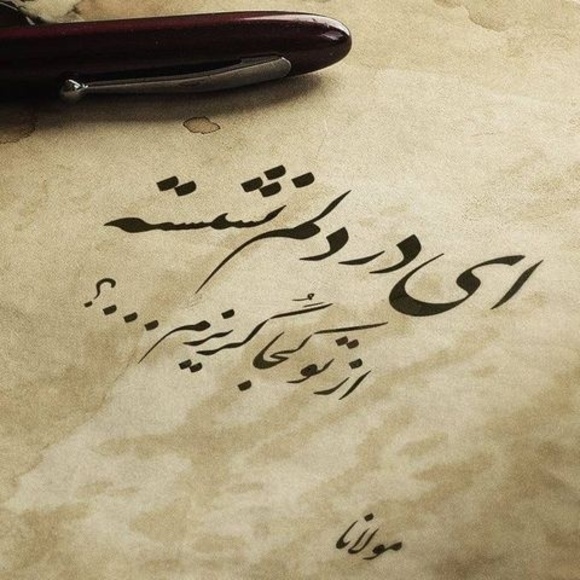 ای در دلم نشسته
از تو کجا گُریزم...؟
مولانا